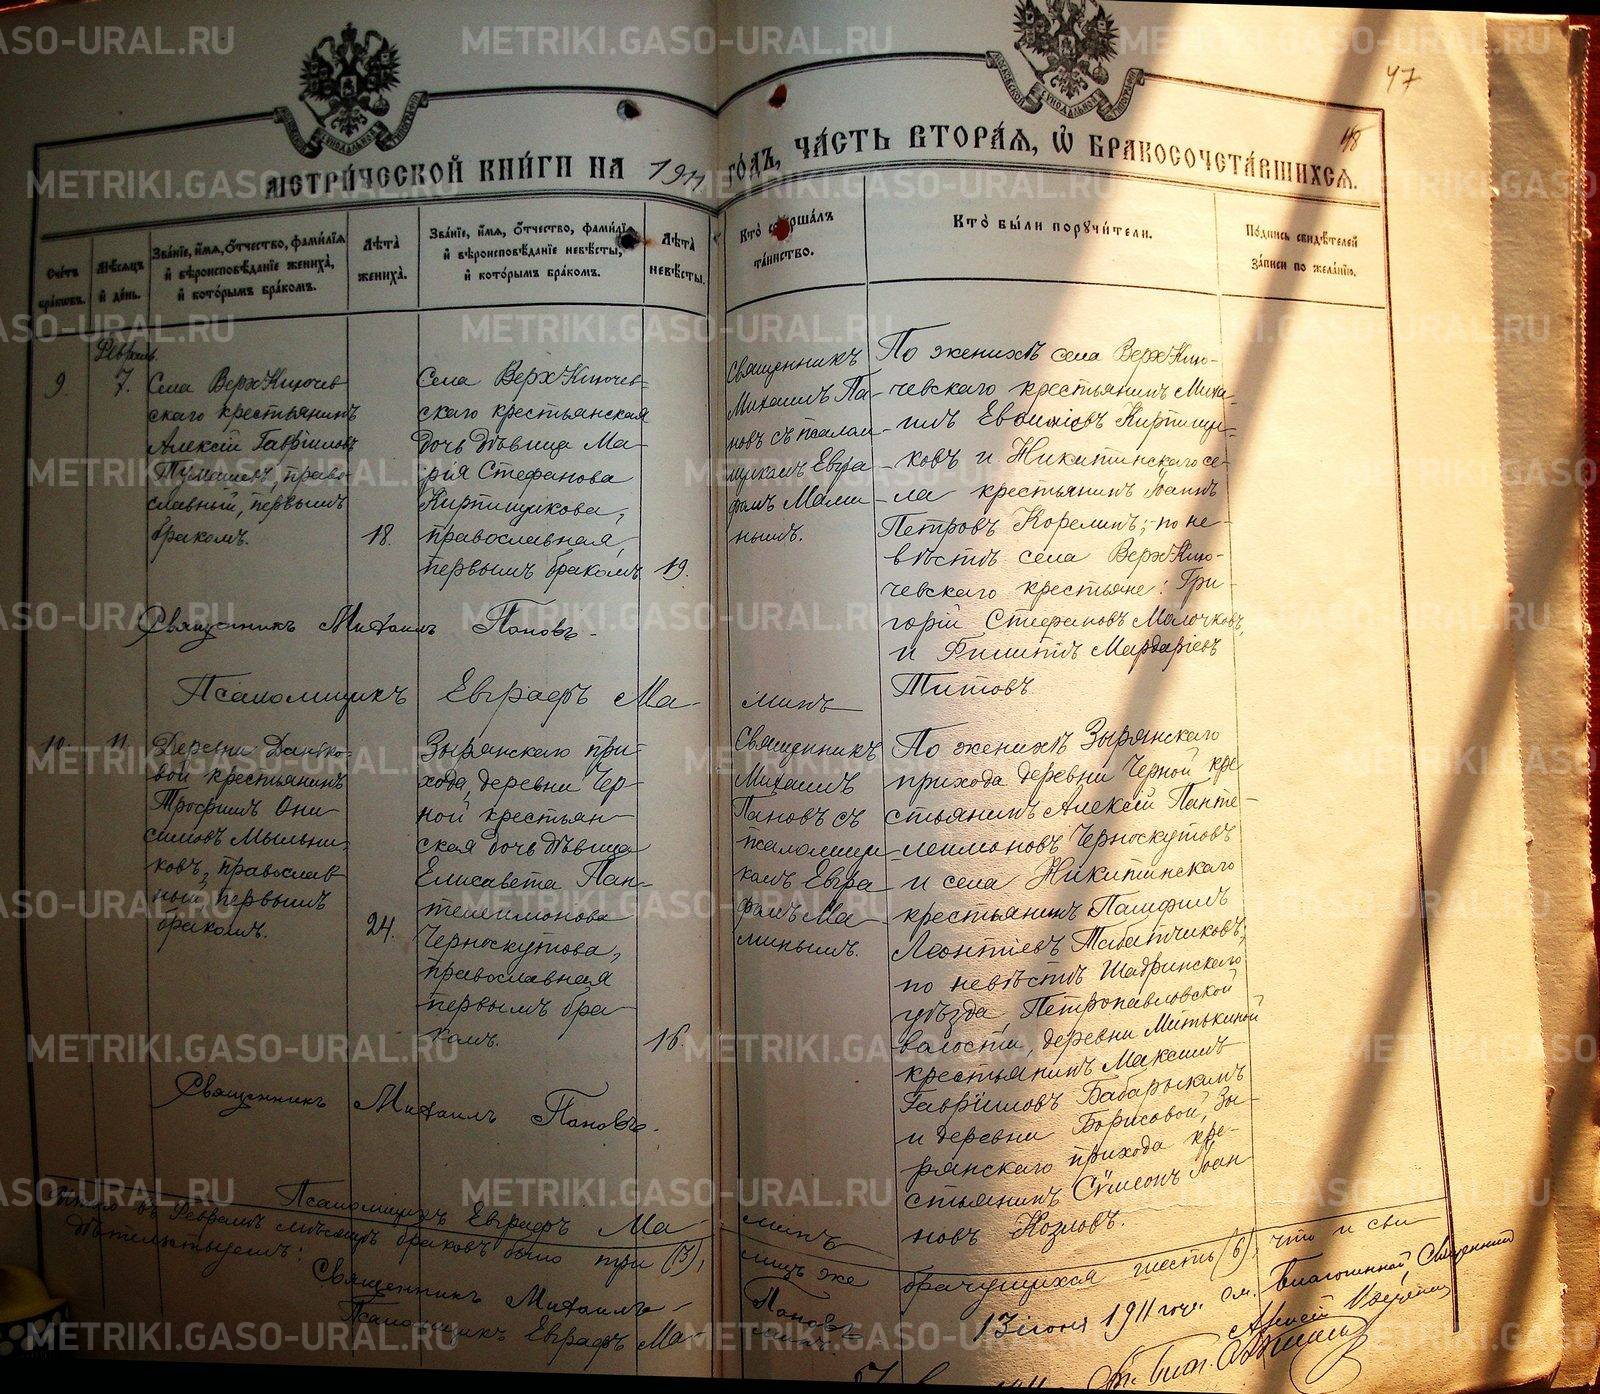 МЕТРИ́ЧЕСКОЙ КНИ́ГИ НА 1911 ГО́ДЪ, ЧА́СТЬ ВТОРА́Я, Ѡ БРАКОСОЧЕТА́ВШИХСЯ.
47
48
Сче́тъ бра́ковъ.
Мѣ́сяцъ и́ де́нь.
Зва́нїе, и́мя, ѻ́тчество, фами́лїя
и́ вѣроисповѣ́данїе жениха̀,
и́ кото́рымъ бра́комъ.
Лѣ́та
жениха̀.
Зва́нїе, и́мя, ѻ́тчество, фами́лїя
и́ вѣроисповѣ́данїе невѣ́сты,
и́ кото́рымъ бра́комъ.
Лѣ́та
невѣ́сты.
Кто̀ соверша́лъ
та́инство.
Кто̀ бы́ли порꙋчи́тели.
По́дпись свидѣ́телей
за́писи по жела́нїю.
Февраль.
9.
7.
Села Верх-Ключев
скаго крестьянинъ
Алексій Гавріиловъ
право-
славный, первымъ
бракомъ.
18.
Села Верх-Ключев-
скаго крестьянская
дочь дѣвица Ма-
рия Стефанова
Кирпищикова,
православная,
первымъ бракомъ.
19.
Священникъ
Михаилъ Па-
новъ съ псалом-
щикомъ Евгра-
фомъ Мами-
нымъ.
По женихѣ села Верх-Клю-
чевскаго крестьянинъ Миха-
илъ Евѳиміевъ Кирпищи-
ковъ и Никитинскаго се-
ла крестьянинъ Іоаннъ
Петровъ Корелинъ; по не-
вѣстѣ села Верх-Клю-
чевскаго крестьяне: Гри-
горій Стефановъ Молочковъ,
и Филиппъ Мардаріевъ
Титовъ
Священникъ Михаилъ Пановъ.
Псаломщикъ Евграфъ Ма- минъ
10.
11.
Деревни Данько-
вой крестьянинъ
Трофимъ Они-
симовъ Мыльни-
ковъ, православ
ный, первымъ
бракомъ.
24.
Зырянскаго при-
хода, деревни Чер-
ной крестьян-
ская дочь дѣвица
Елисавета Пан-
телеимонова
Черноскутова,
православная
первымъ бра-
комъ.
16.
Священникъ
Михаилъ
Пановъ съ
псаломщи-
комъ Евгра-
фомъ Ма-
минымъ.
По женихѣ Зырянскаго
прихода деревни Черной кре
стьянинъ Алексій Панте-
леимоновъ Черноскутовъ
и села Никитинскаго
крестьянинъ Памфилъ
Леонтіевъ Табатчиковъ;
по невѣстѣ Шадринскаго
уѣзда, Петропавловской
волости, деревни Митькиной
крестьянинъ Максимъ
Гавріиловъ Бабарыкинъ
и деревни Борисовой, Зы-
рянскаго прихода кре-
стьянинъ Сѵмеонъ Іоан
новъ Козловъ.
Священникъ Михаилъ Пановъ.
Псаломщикъ Евграфъ Ма- минъ
въ Февралѣ мѣсяцѣ браковъ было три (3), лицъ же брачущихся шесть (6), что и сви
дѣтельствуемъ:
Священникъ Михаилъ Пановъ
Псаломщикъ Евграфъ Ма- минъ
13 іюня 1911 года Благочинный Священникъ
Алексій
METRIKI.GASO-URAL.RU